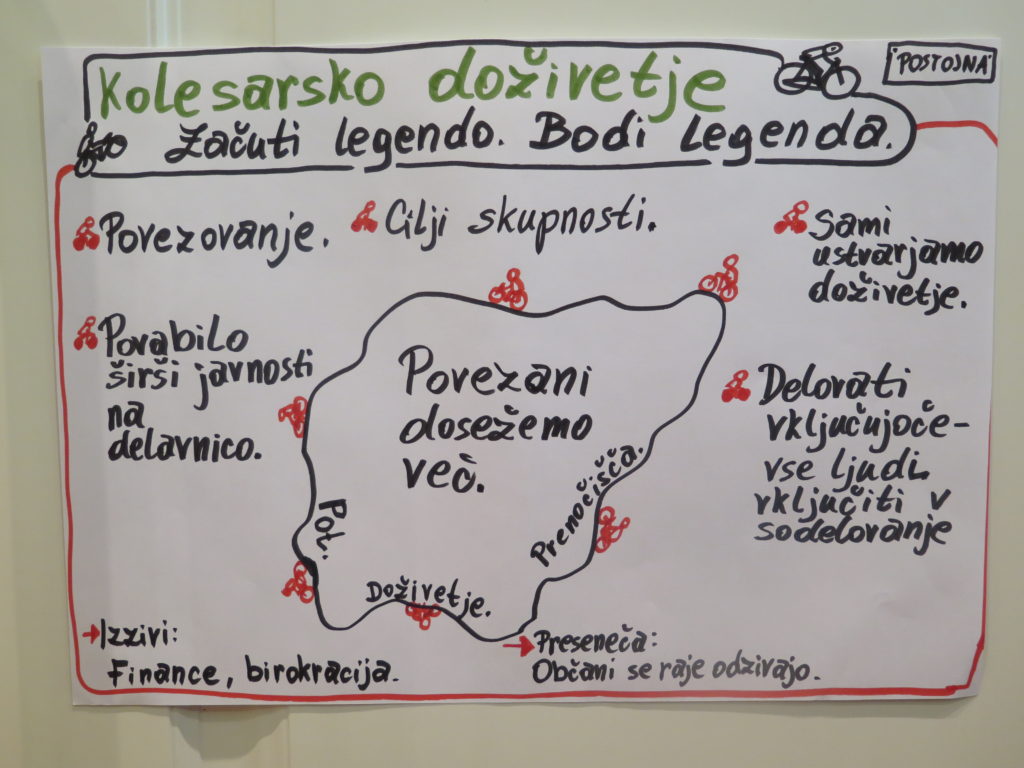 Kolesarsko doživetje
POSTOJNA
Začuti legendo. Bodi legenda.
Povezovanje.
Cilji skupnosti.
Sami
ustvarjamo
doživetje.
Povabilo
širši javnosti
na
delavnico.
Povezani
dosežemo
več.
Delovati
vključujoče-
vse ljudi
vključiti v
sodelovanje
Pot.
Doživetje.
Prenočišča.
Izzivi:
Finance, birokracija.
Preseneča:
Občani se raje odzivajo.